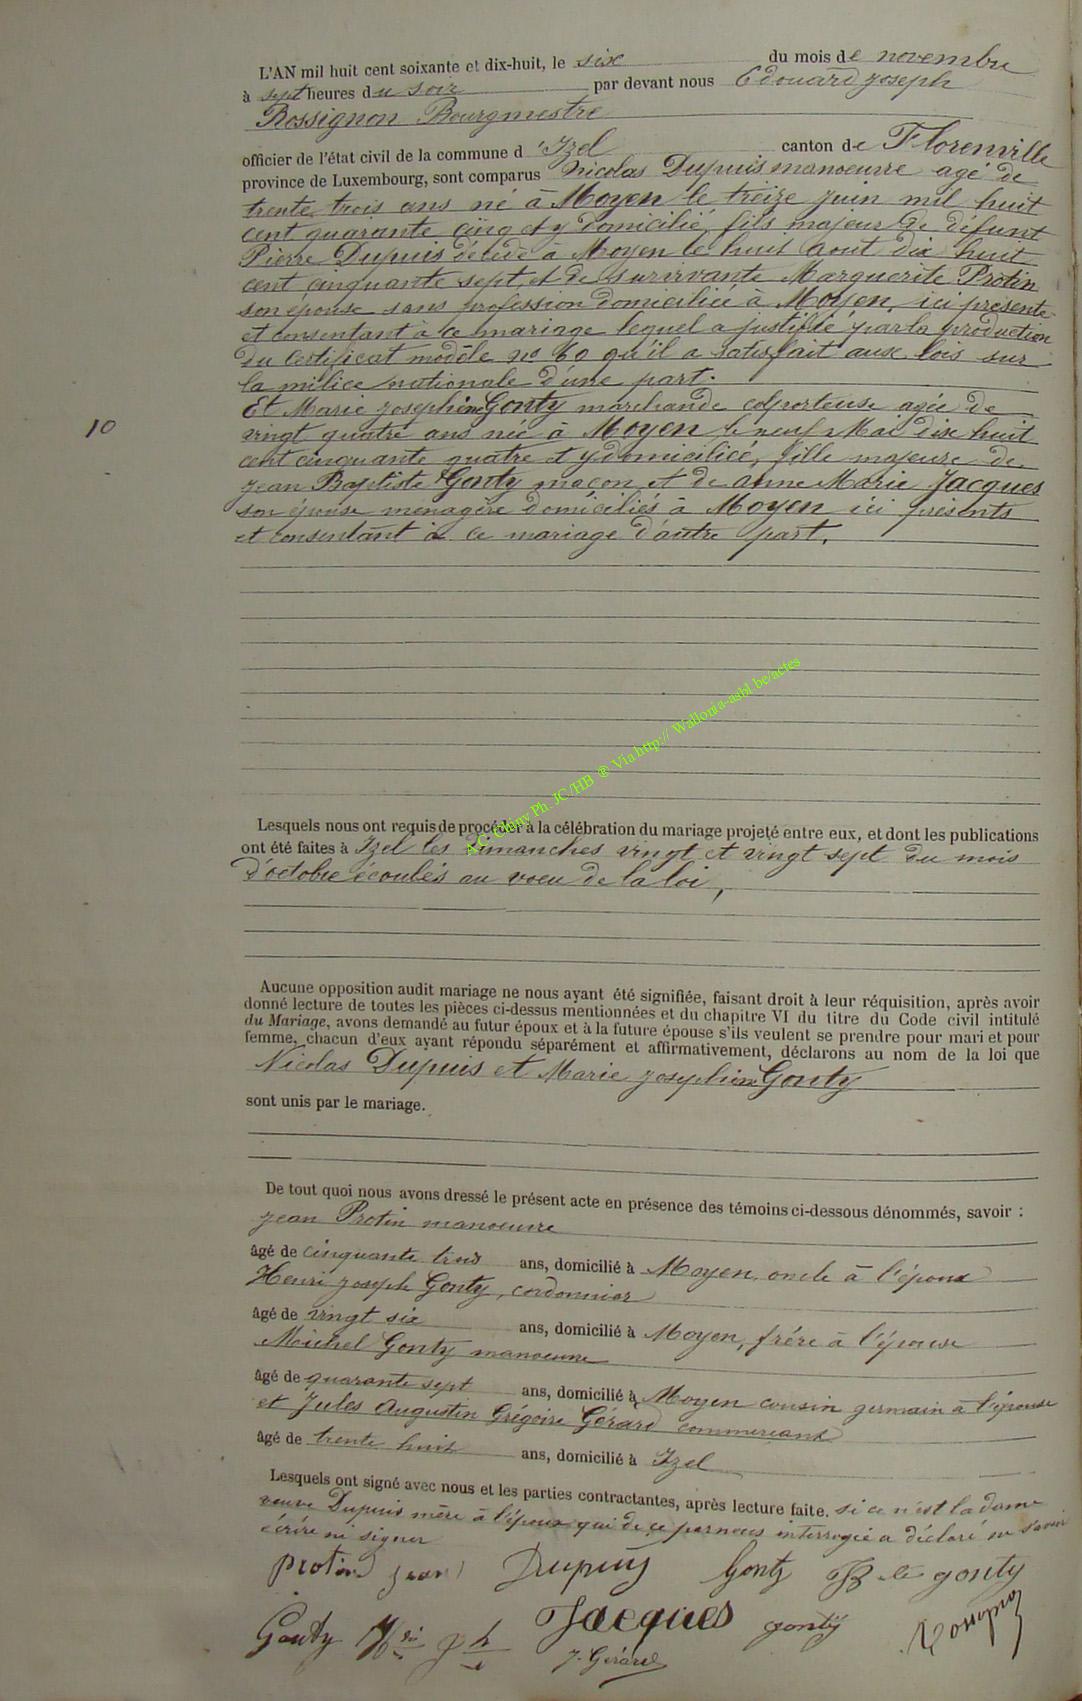 L'AN mil huit cent soixante et dix-huit, le six du mois de novembre
à sept heures du soir par devant nous Edouard Joseph
Rossignon Bourgmestre
officier de l'état civil de la commune d'Izel canton de Florenville
province de Luxembourg, sont comparus Nicolas Dupuis manoeuvre agé de
trente trois ans né à Moyen le treize juin mil huit
cent quarante cinq et y domicilié, fils majeur de défunt
Pierre Dupuis décédé à Moyen le huit aout dix huit
cent cinquante sept et de survivante Marguerite Protin
son épouse sans profession domiciliée à Moyen, ici présente
et consentant à ce mariage lequel a justifié par la production
du certificat modèle no 60 qu'il a satisfait aux lois sur
la milice nationale d'une part.
Et Marie Josephine Gonty marchande colporteuse agée de
10
vingt quatre ans née à Moyen le neuf Mai dix huit
cent cinquante quatre et y domiciliée, fille majeure de
Jean Baptiste Gonty maçon et de anne Marie Jacques
son épouse ménagère domiciliés à Moyen ici présents
et consentant à ce mariage d'autre part.
A.C. Chiny Ph. JC/HB ® Via http:// Wallonia-asbl.be/actes
Lesquels nous ont requis de procéder à la célébration du mariage projeté entre eux, et dont les publications
ont été faites à Izel les Dimanches vingt et vingt sept du mois
d'octobre écoulés au voeu de la loi,
Aucune opposition audit mariage ne nous ayant été signifiée, faisant droit à leur réquisition, après avoir
donné lecture de toutes les pièces ci-dessus mentionnées et du chapitre VI du titre du Code civil intitulé
du Mariage, avons demandé au futur époux et à la future épouse s'ils veulent se prendre pour mari et pour
femme, chacun d'eux ayant répondu séparément et affirmativement, déclarons au nom de la loi que
Nicolas Dupuis et Marie Josephine Gonty
sont unis par le mariage.
De tout quoi nous avons dressé le présent acte en présence des témoins ci-dessous dénommés, savoir :
Jean Protin manoeuvre
âgé de cinquante trois ans, domicilié à Moyen, oncle à l'époux
Henri Joseph Gonty, cordonnier
âgé de vingt six ans, domicilié à Moyen, frère à l'épouse
Michel Gonty manoeuvre
âgé de quarante sept ans, domicilié à Moyen cousin germain à l'épouse
et Jules Augustin Grégoire Gérard commercant
âgé de trente huit ans, domicilié à Izel
Lesquels ont signé avec nous et les parties contractantes, après lecture faite, si ce n'est la dame
veuve Dupuis mère à l'époux qui de ce par nous interrogée a déclaré ne savoir
écrire ni signer
Protin Jean Dupuis Gonty gonty
Gonty Jacques gonty
J. Gérard